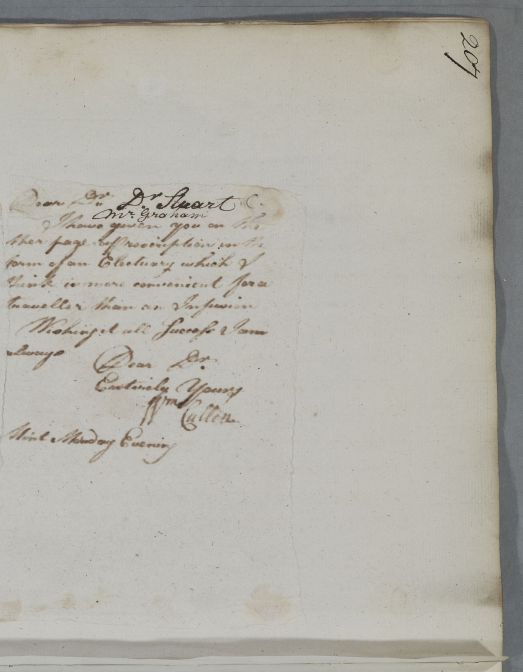 207
Dear Dr. Dr Stuart C.
Mr Graham
I have given you on the
ther page a prescription in the
form of an Electuary which I
think is more convenient for a
traveller than an Infusion
Wishing it all Success I am
always
Dear Dr.
Entirely Yours
Wm Cullen
Mint Monday Evening